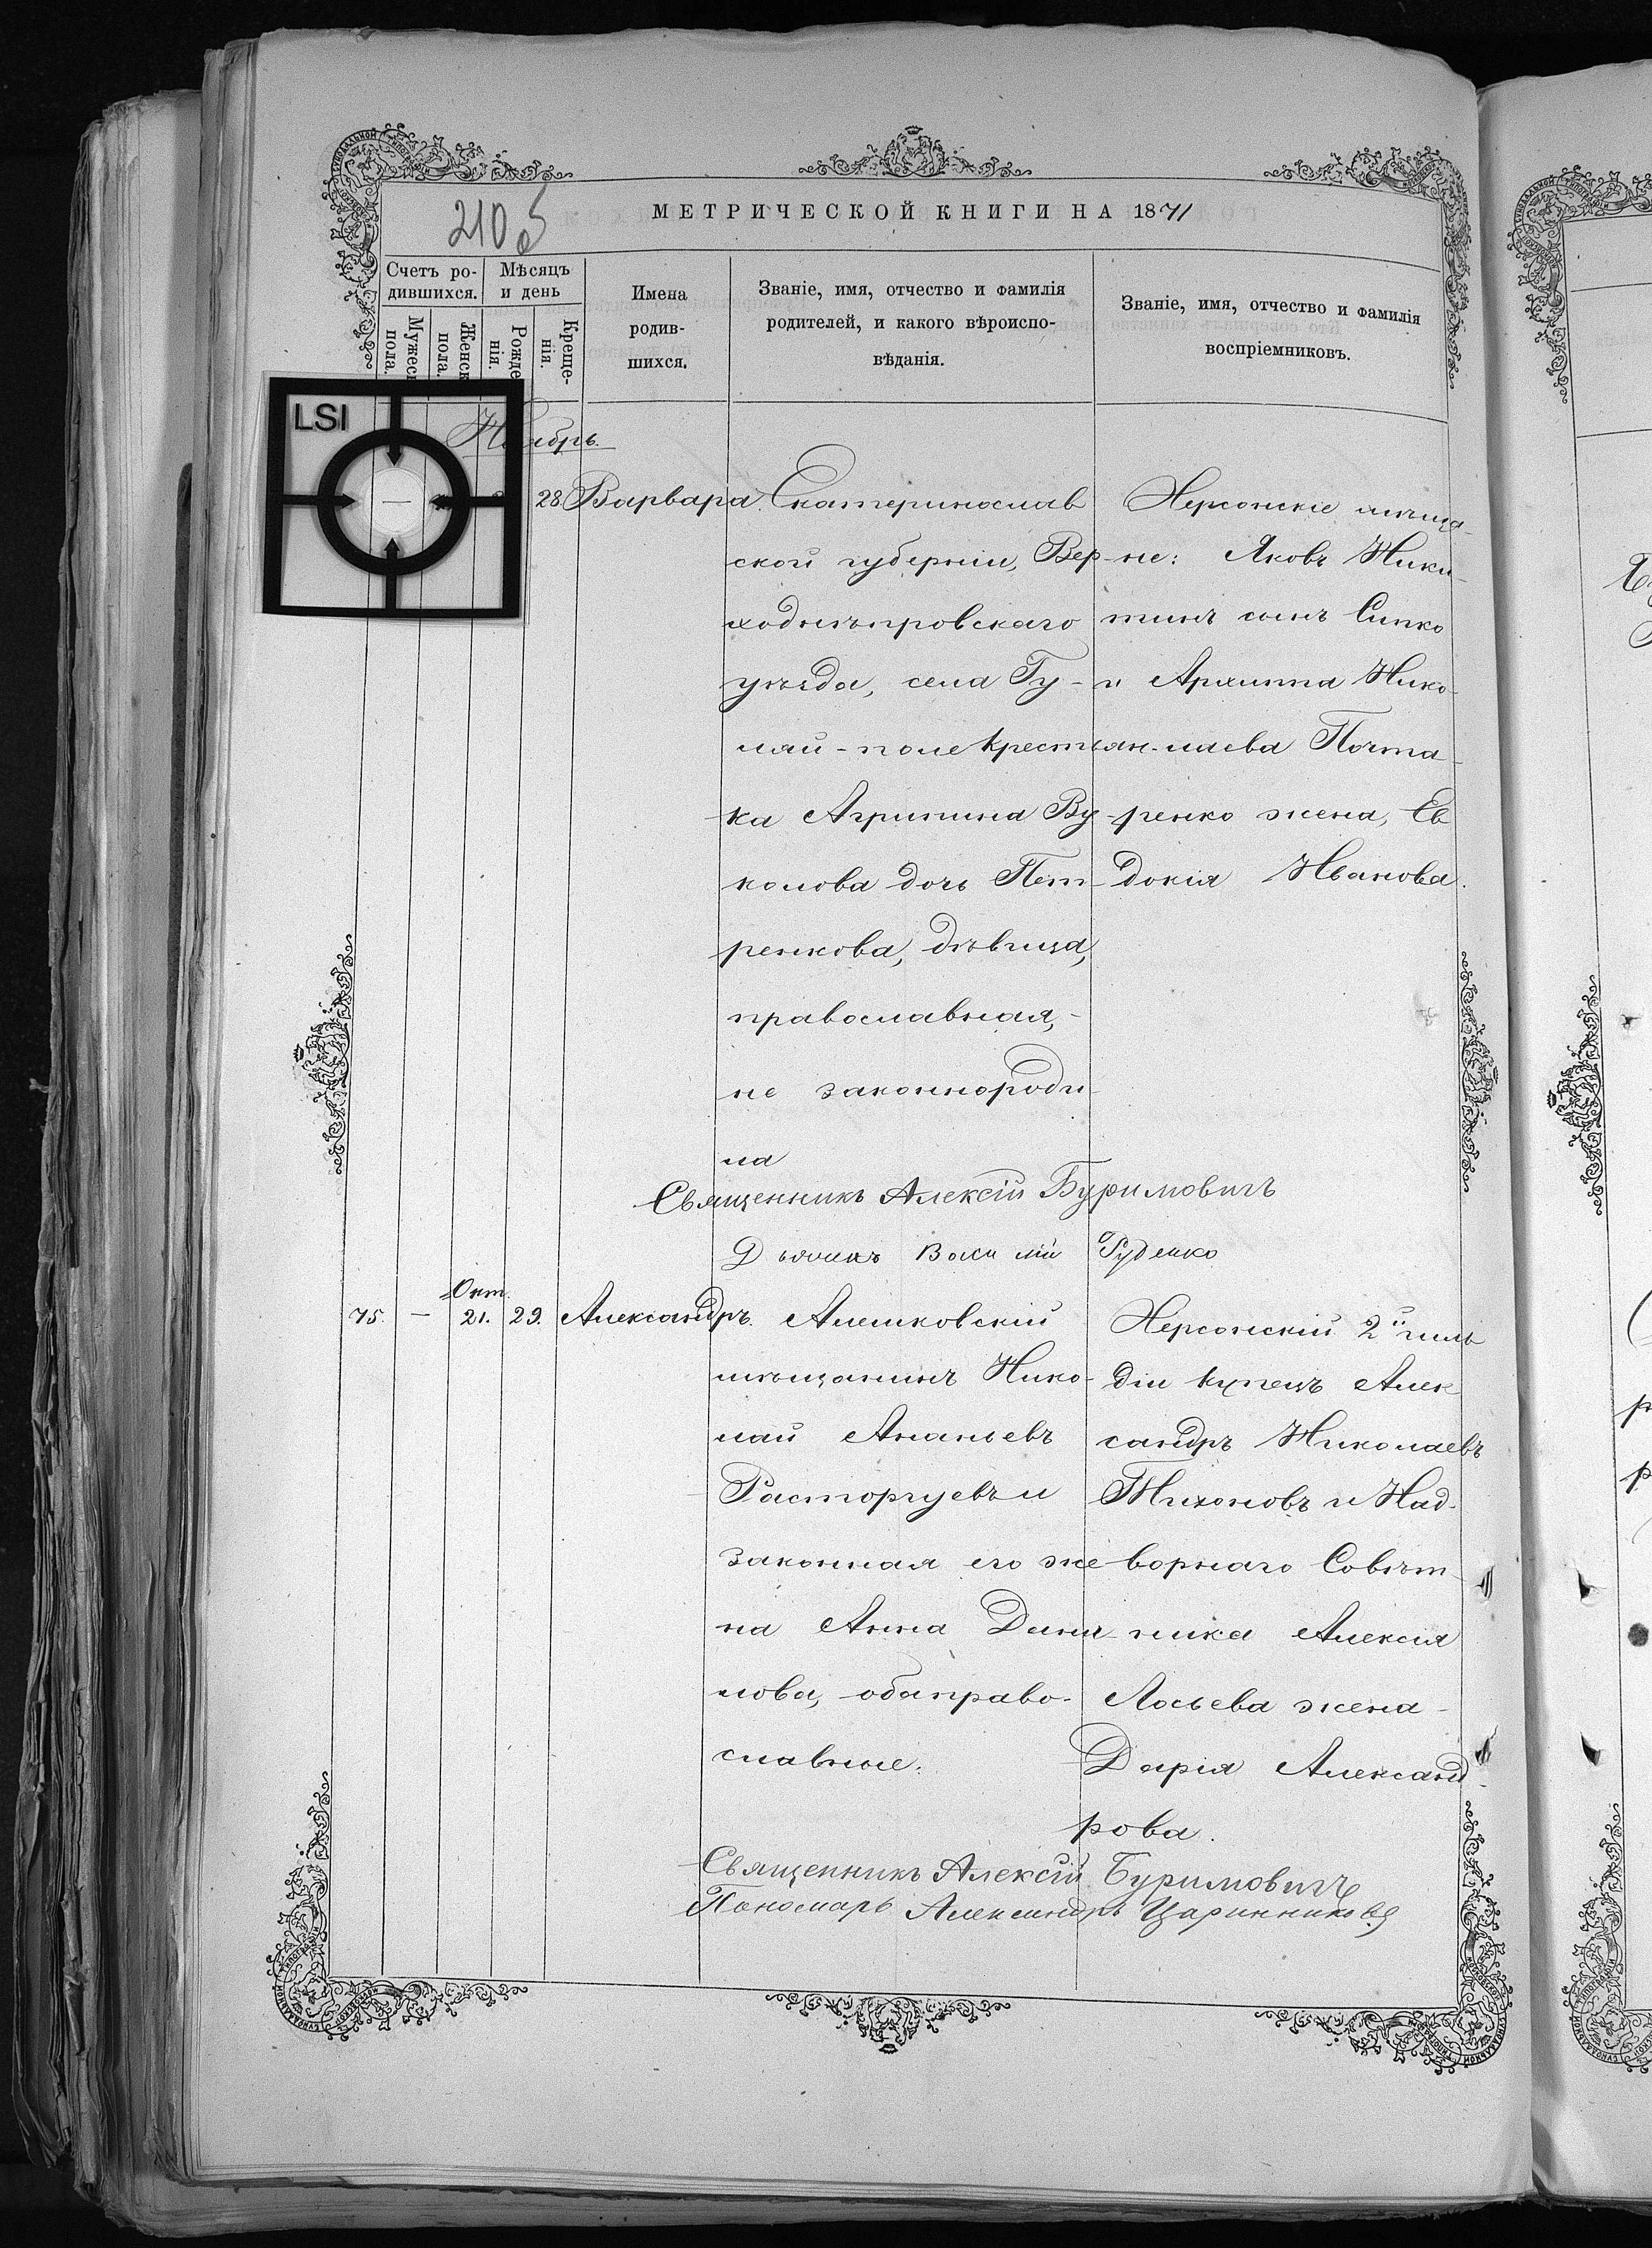 210 об
МЕТРИЧЕСКОЙ КНИГИ НА 1871
Счетъ ро-
дившихся.
Мѣсяцъ
и день
Мужеск
пола.
Женск
пола.
Рожде
нія.
Креще-
нія.
Имена
родив-
шихся.
Званіе, имя, отчество и фамилія
родителей, и какого вѣроиспо-
вѣданія.
Званіе, имя, отчество и фамилія
воспріемниковъ.
LSI
Ноябрь.
28 Варвара.
Екатеринослав
ской губерніи, Вер-
ходнѣпровскаго
уѣзда, села Гу-
ляй-поле крестьян-
ка Агрипина Ву-
колова дочь Пет-
ренкова, дѣвица,
православная,
не законнороди-
ла
Херсонскіе мѣща-
не: Яковъ Ники-
тинъ сынъ Сипко
и Архиппа Нико-
лаева Почта-
ренко жена, Ев
докія Иванова.
Священникъ Алексій Буримовичъ
Дьячикъ Василій Руденко
75. — Окт. 21. 29. Александръ.
Алешковскій
мѣщанинъ Нико-
лай Ананьевъ
Расторгуевъ и
законная его же-
на Анна Дани-
лова, оба право-
славные.
Херсонскій 2й гиль
діи купецъ Алек
сандръ Николаевъ
Тихоновъ и Над-
ворнаго Совѣт-
ника Алексія
Лосьева жена
Дарія Александ-
рова.
Священникъ Алексій Буримовичъ
Пономарь Александръ Царинниковъ